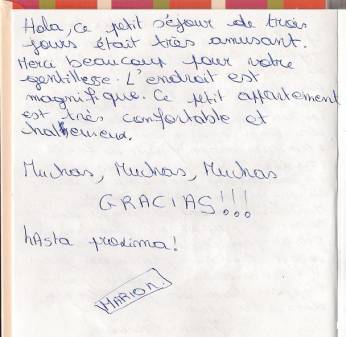 Hola, ce petit séjour de trois
jours était très amusant.
Merci beaucoup pour votre
gentillesse. L'endroit est
magnifique. Ce petit appartement
est très comfortable et
chaleureux.
Muchas, Muchas, Muchas
GRACIAS!!!
hAsta proxima!
MARION.